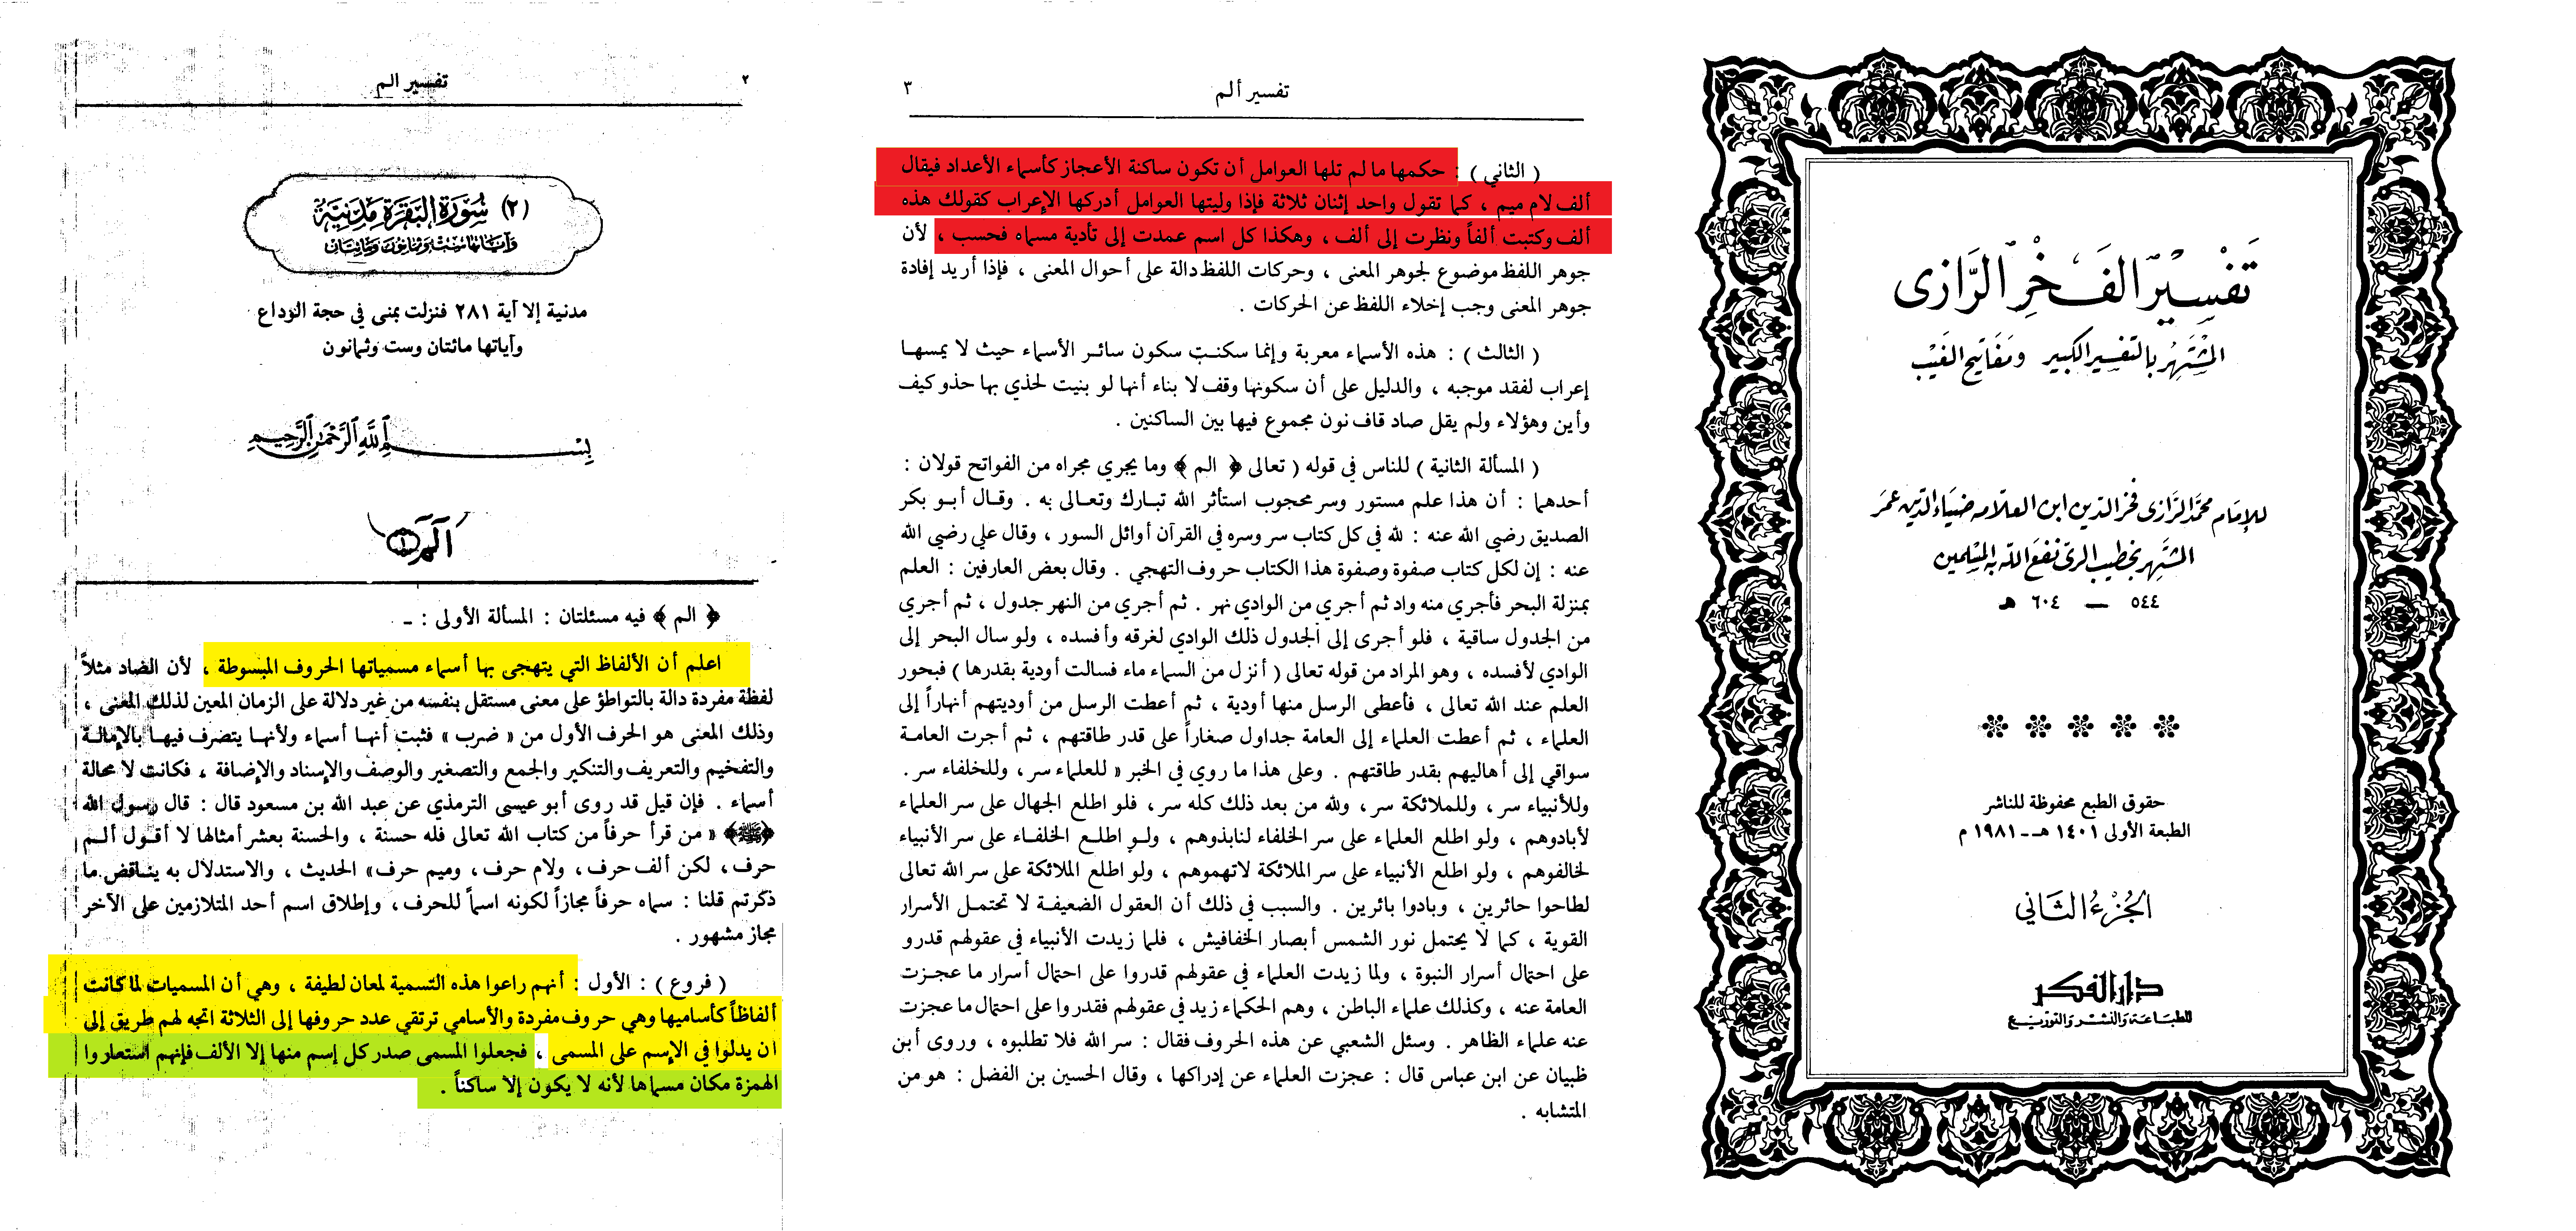 تفسير الم
٢
(٢) سُورَةُ البَقَرَة مَدَنِيَّة
وَآيَاتهَا سِتٌّ وَثَمَانُونَ وَمِائَتَان
مدنية إلا آية ٢٨١ فنزلت بمنى في حجة الوداع
وآياتها مائتان وست وثمانون
بِسْمِ اللَّهِ الرَّحْمَٰنِ الرَّحِيمِ
الٓمٓ ١
﴿ الم ﴾ فيه مسئلتان : المسألة الأولى : ـ
اعلم أن الألفاظ التي يتهجى بها أسماء مسمياتها الحروف المبسوطة ، لأن الضاد مثلاً
لفظة مفردة دالة بالتواطؤ على معنى مستقل بنفسه من غير دلالة على الزمان المعين لذلك المعنى ،
وذلك المعنى هو الحرف الأول من « ضرب » فثبت أنهـا أسماء ولأنهـا يتصرف فيهـا بالإمالـة
والتفخيم والتعريف والتنكير والجمع والتصغير والوصف والإسناد والإضافة ، فكانت لا محالة
أسماء . فإن قيل قد روى أبو عيسى الترمذي عن عبد الله بن مسعود قال : قال رسول الله
﴿ﷺ﴾ « من قرأ حرفاً من كتاب الله تعالى فله حسنة ، والحسنة بعشر أمثالها لا أقـول ألـم
حرف ، لكن ألف حرف ، ولام حرف ، وميم حرف» الحديث ، والاستدلال به يناقض ما
ذكرتم قلنا : سماه حرفاً مجازاً لكونه اسماً للحرف ، وإطلاق اسم أحد المتلازمين على الآخر
مجاز مشهور .
( فروع ) : الأول : أنهم راعوا هذه التسمية لمعان لطيفة ، وهي أن المسميات لما كانت
ألفاظاً كأساميها وهي حروف مفردة والأسامي ترتقي عدد حروفها إلى الثلاثة اتجه لهم طريق إلى
ان يدلوا في الإسم على المسمى ، فجعلوا المسمى صدر كل إسم منها إلا الألف فإنهم استعاروا
الهمزة مكان مسماها لأنه لا يكون إلا ساكناً .
تفسير ألم
٣
( الثاني ) : حكمها ما لم تلها العوامل أن تكون ساكنة الأعجاز كأسماء الأعداد فيقال
ألف لام ميم ، كما تقول واحد إثنان ثلاثة فإذا وليتها العوامل أدركها الإعراب كقولك هذه
ألف وكتبت ألفاً ونظرت إلى ألف ، وهكذا كل اسم عمدت إلى تأدية مسماه فحسب ، لأن
جوهر اللفظ موضوع لجوهر المعنى ، وحركات اللفظ دالة على أحوال المعنى ، فإذا أريد إفادة
جوهر المعنى وجب إخلاء اللفظ عن الحركات .
( الثالث ) : هذه الأسماء معربة وإنما سكنت سكون سائـر الأسماء حيث لا يمسهـا
إعراب لفقد موجبه ، والدليل على أن سكونها وقف لا بناء أنها لو بنيت لحذي بها حذو كيف
وأين وهؤلاء ولم يقل صاد قاف نون مجموع فيها بين الساكنين .
( المسألة الثانية ) للناس في قوله ( تعالى ﴿ الم ﴾ وما يجري مجراه من الفواتح قولان :
أحدهما : أن هذا علم مستور وسر محجوب استأثر الله تبـارك وتعـالى به . وقـال أبـو بكر
الصديق رضي الله عنه : لله في كل كتاب سر وسره في القرآن أوائل السور ، وقال علي رضي الله
عنه : إن لكل كتاب صفوة وصفوة هذا الكتاب حروف التهجي . وقال بعض العارفين : العلم
بمنزلة البحر فأجري منه واد ثم أجري من الوادي نهر . ثم أجري من النهر جدول ، ثم أجري
من الجدول ساقية ، فلو أجرى إلى الجدول ذلك الوادي لغرقه وأفسده ، ولو سال البحر إلى
الوادي لأفسده ، وهو المراد من قوله تعالى ( أنزل من السماء ماء فسالت أودية بقدرها ) فبحور
العلم عند الله تعالى ، فأعطى الرسل منها أودية ، ثم أعطت الرسل من أوديتهم أنهاراً إلى
العلماء ، ثم أعطت العلماء إلى العامة جداول صغاراً على قدر طاقتهم ، ثم أجرت العامـة
سواقي إلى أهاليهم بقدر طاقتهم . وعلى هذا ما روي في الخبر « للعلماء سر ، وللخلفاء سر .
وللأنبياء سر ، وللملائكة سر ، ولله من بعد ذلك كله سر ، فلو اطلع الجهال على سر العلماء
لأبادوهم ، ولو اطلع العلماء على سر الخلفاء لنابذوهم ، ولـو اطلـع الخلفـاء على سر الأنبياء
لخالفوهم ، ولو اطلع الأنبياء على سر الملائكة لاتهموهم ، ولو اطلع الملائكة على سر الله تعالى
لطاحوا حائرين ، وبادوا بائرين . والسبب في ذلك أن العقول الضعيفـة لا تحتمـل الأسرار
القوية ، كما لا يحتمل نور الشمس أبصار الخفافيش ، فلما زيدت الأنبياء في عقولهم قدرو
على احتمال أسرار النبوة ، ولما زيدت العلماء في عقولهم قدروا على احتمال أسرار ما عجـزت
العامة عنه ، وكذلك علماء الباطن ، وهم الحكماء زيد في عقولهم فقدروا على احتمال ما عجزت
عنه علماء الظاهر . وسئل الشعبي عن هذه الحروف فقال : سر الله فلا تطلبوه ، وروى أبـن
ظبيان عن ابن عباس قال : عجزت العلماء عن إدراكها ، وقال الحسين بن الفضل : هو من
المتشابه .
تَفْسِيرُ الفَخْرِ الرَّازِى
المُشْتَهِرُ بِالتَفْسِيرِ الكَبِيرِ وَمَفَاتِيحِ الغَيْبِ
للإِمَام مُحَمَّد الرَّازى فخر الدِّين ابن العلّامه ضيَاء الدّين عمَر
المشْتَهر بخطيب الرىّ نفعَ الله به المسْلمين
٥٤٤ ـــ ٦٠٤ هـ
حقوق الطبع محفوظة للناشر
الطبعة الأولى ١٤٠١ هـ ــ ١٩٨١ م
الجُزْءُ الثَّانِي
دار الفكر
للطبَاعَة وَالنَشْر وَالتوزيع